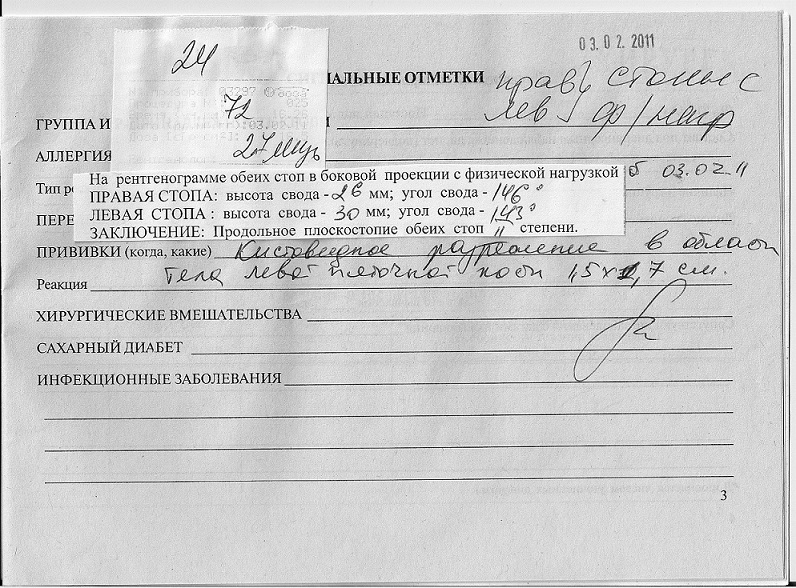 03.02.2011
24
ИАЛЬНЫЕ ОТМЕТКИ
прав стопы с
лев ф/нагр
72
ГРУППА И
27 мкзв
АЛЛЕРГИЯ
На рентгенограмме обеих стоп в боковой проекции с физической нагрузкой
б 03.02.11
Тип ре
ПРАВАЯ СТОПА: высота свода - 26 мм; угол свода - 146°
ЛЕВАЯ СТОПА : высота свода - 30 мм; угол свода - 143°
ПЕРЕ
ЗАКЛЮЧЕНИЕ: Продольное плоскостопие обеих стоп II степени.
ПРИВИВКИ (когда, какие) Кистовидное разрежение в области
Реакция тела левой пяточной кости 1,5х0,7 см.
ХИРУРГИЧЕСКИЕ ВМЕШАТЕЛЬСТВА
САХАРНЫЙ ДИАБЕТ
ИНФЕКЦИОННЫЕ ЗАБОЛЕВАНИЯ
3